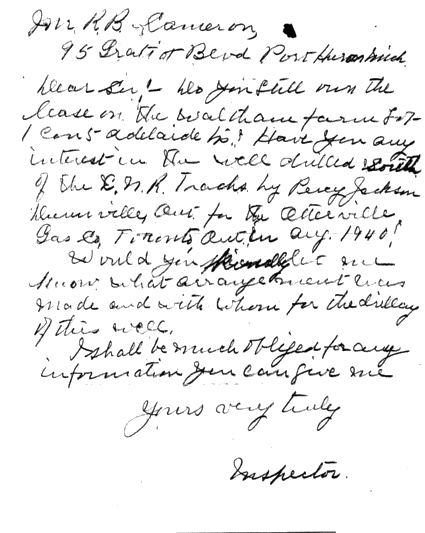 Mr. R. B. Cameron,
95 Gratiot Blvd Port Huron Mich
Dear Sir,:- Do you still own the
lease on the Waltham farm Lot
1 Con 5 Adelaide Tp.? Have you any
interest in the well drilled south
of the C.N.R. Tracks by Percy Jackson
Dunnville, Ont. for the Otterville
Gas Co, Toronto Ont. in Aug. 1940?
Would you kindly let me
know what arrangement was
made and with whom for the drilling
of this well.
I shall be much obliged for any
information you can give me
Yours very truly
Inspector.